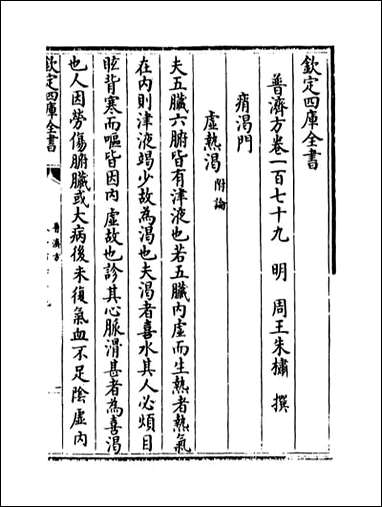 欽定四庫全書
普濟方卷一百七十九 明 周王朱橚 撰
痟渴門
虛熱渴附論
夫五臟六腑皆有津液也若五臟內虛而生熱者熱氣
在内則津液竭少故為渴也夫渴者喜水其人必煩目
眩背寒而嘔皆因内虛故也診其心脈滑甚者為喜渴
也人因勞傷腑臟或大病後未復氣血不足陰虛内
欽定四庫全書
普濟方